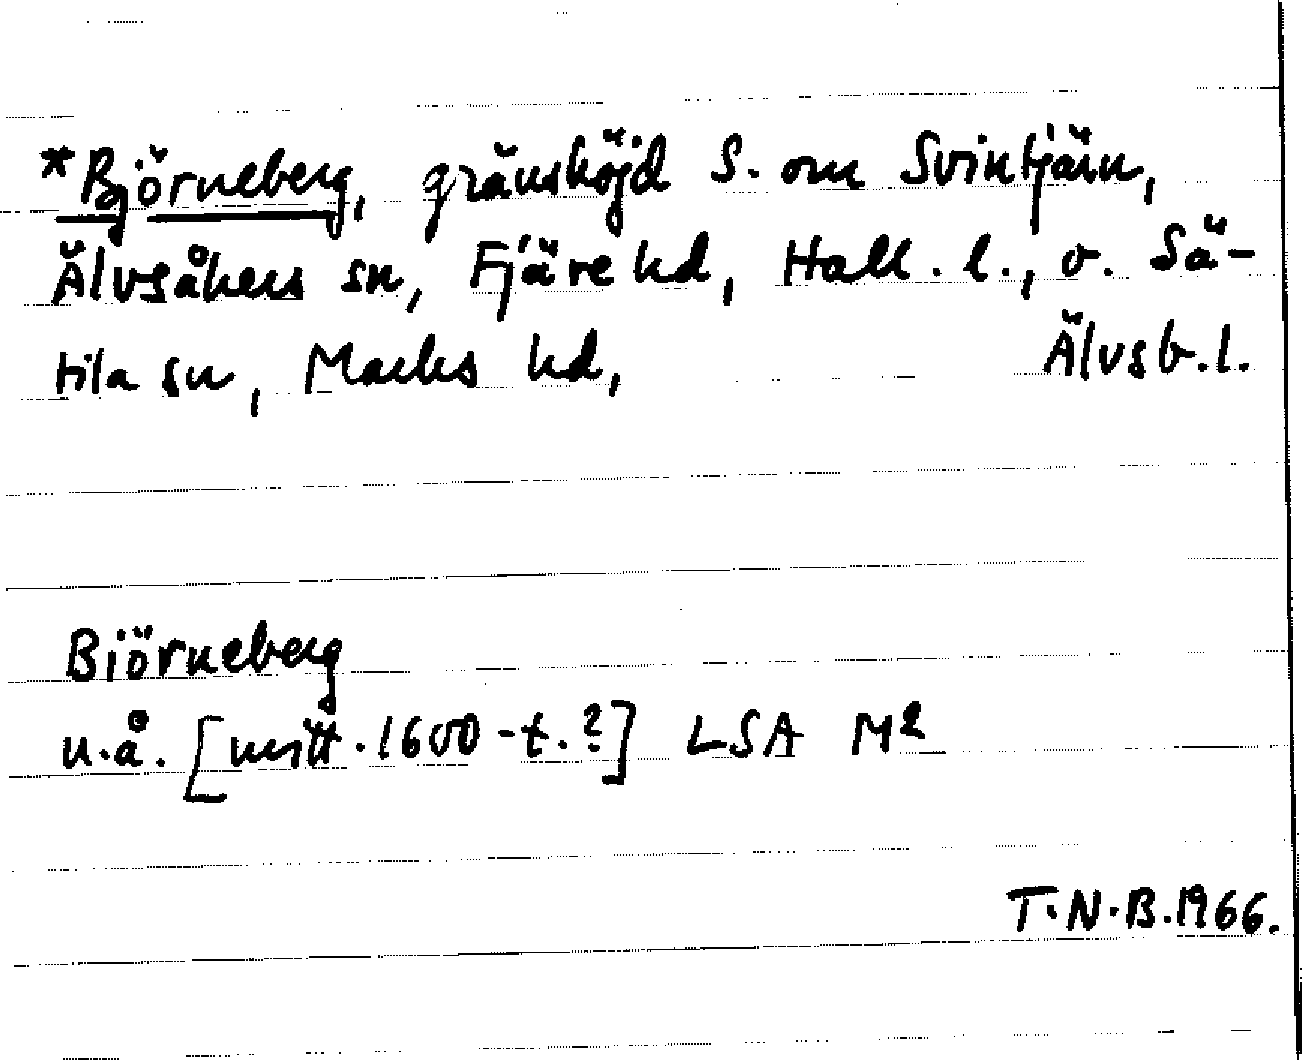 *Björneberg, gränshöjd S. om Svintjärn,
Älvsåkers sn, Fjäre hd, Hall. l., o. Sä-
tila sn, Marks hd, Älvsb. l.
Biörneberg
u.å. [mitt. 1600-t.?] LSA M²
T.N.B. 1966.